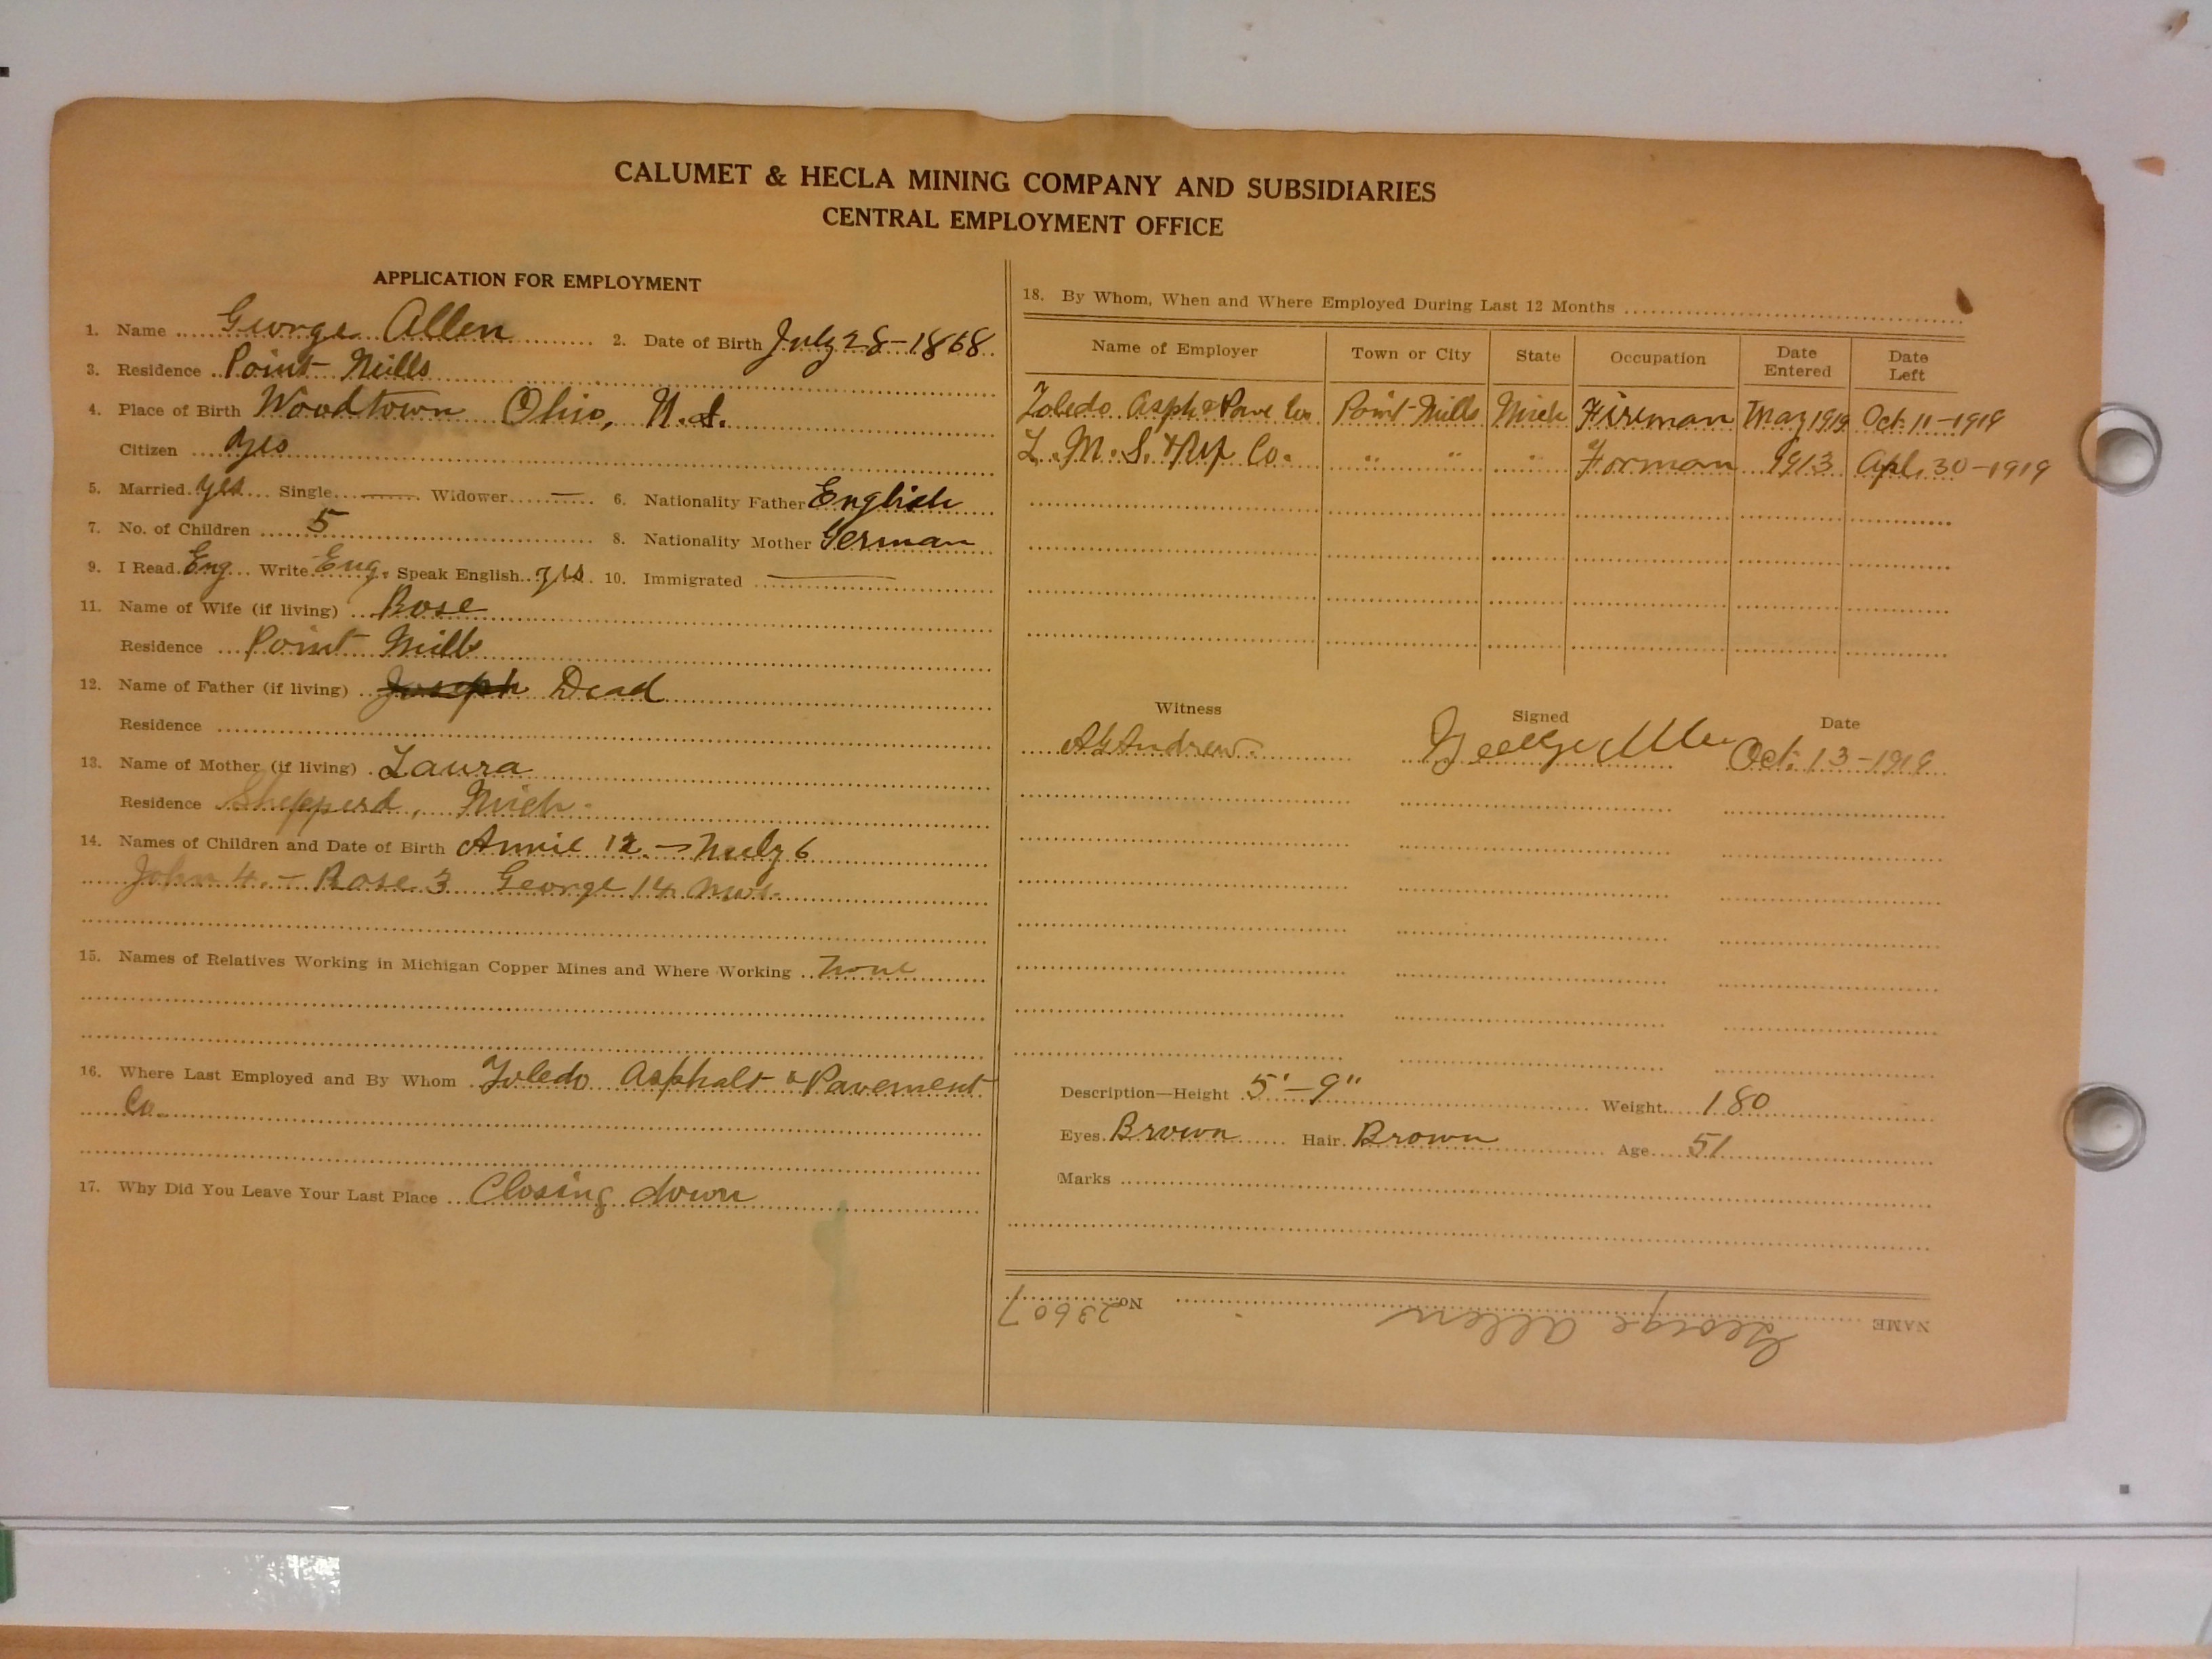 CALUMET & HECLA MINING COMPANY AND SUBSIDIARIES
CENTRAL EMPLOYMENT OFFICE
APPLICATION FOR EMPLOYMENT
1. Name George Allen 2. Date of Birth July 28-1868
3. Residence Point Mills
4. Place of Birth Woodtown Ohio, U.S.
Citizen yes
5. Married yes Single — Widower — 6. Nationality Father English
7. No. of Children 5 8. Nationality Mother German
9. I Read Eng Write Eng. Speak English yes 10. Immigrated —
11. Name of Wife (if living) Rose
Residence Point Mills
12. Name of Father (if living) Joseph Dead
Residence
13. Name of Mother (if living) Laura
Residence Shepperd, Mich.
14. Names of Children and Date of Birth Annie 12 - 6
John 4 - Rose 3 George 14 mos.
15. Names of Relatives Working in Michigan Copper Mines and Where Working None
16. Where Last Employed and By Whom Toledo Asphalt & Pavement
Co.
17. Why Did You Leave Your Last Place Closing down
18. By Whom, When and Where Employed During Last 12 Months
Name of Employer Town or City State Occupation Date Entered Date Left
Toledo Asph & Pave Co. Point Mills Mich Fireman May 1919 Oct. 11-1919
L. M. S. & Co. " " " Forman 1913 Apl. 30-1919
Witness Signed Date
AG Andrew George Allen Oct. 13-1919
Description—Height 5'-9" Weight 180
Eyes Brown Hair Brown Age 51
Marks
NAME George Allen No. 23607